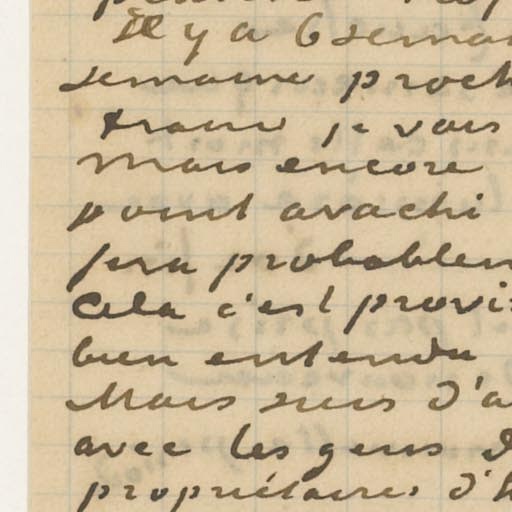 Il y a 6 semai
semaine proch
travail je vais
Mais encore
point avachi
fera probablem
Cela c'est provi
bien entendu
Mais suis d'a
avec les gens d
propriétaires d'h